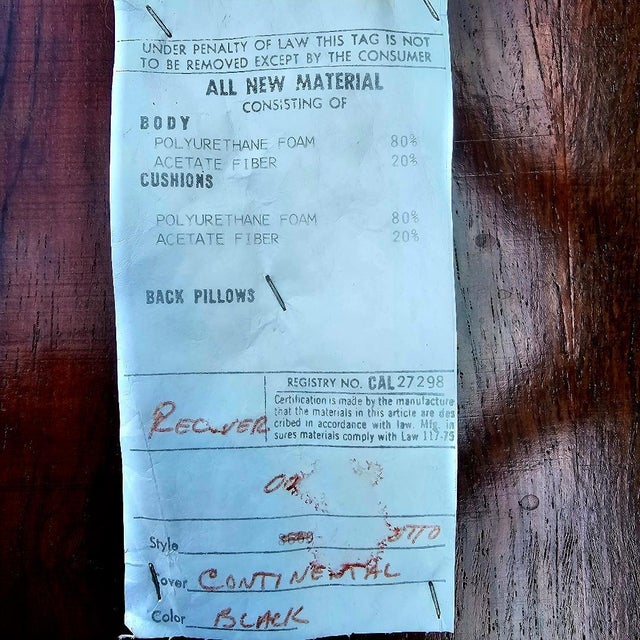 UNDER PENALTY OF LAW THIS TAG IS NOT
TO BE REMOVED EXCEPT BY THE CONSUMER
ALL NEW MATERIAL
CONSISTING OF
BODY
POLYURETHANE FOAM 80%
ACETATE FIBER 20%
CUSHIONS
POLYURETHANE FOAM 80%
ACETATE FIBER 20%
BACK PILLOWS
REGISTRY NO. CAL 27298
Certification is made by the manufacture
that the materials in this article are des
cribed in accordance with law. Mfg. in
sures materials comply with Law 117-75
RECOVER
Style
over CONTINENTAL
Color BLACK